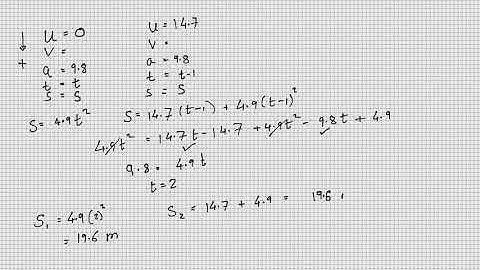 ↓ +
u = 0
v =
a = 9.8
t = t
s = s
u = 14.7
v =
a = 9.8
t = t-1
s = s
S = 4.9t²
S = 14.7(t-1) + 4.9(t-1)²
4.9t² = 14.7t - 14.7 + 4.9t² - 9.8t + 4.9
9.8 = 4.9t
t = 2
S₁ = 4.9(2)²
= 19.6 m
S₂ = 14.7 + 4.9 = 19.6